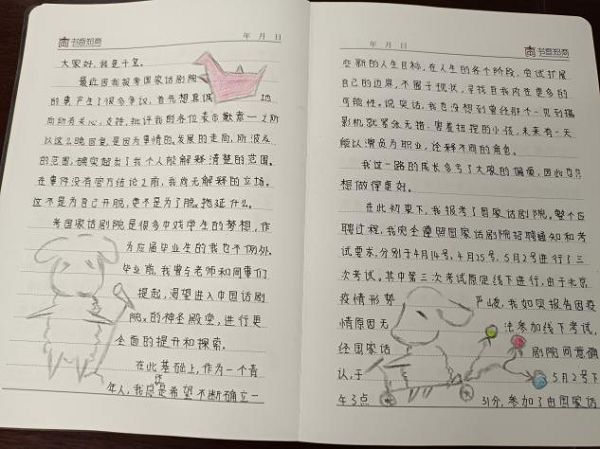 书香知意
年 月 日
大家好，我是千玺。
最近因我报考国家话剧院
的事产生了很多争议，首先想真诚地
向所有关心、支持、批评我的各位表示歉意——之所
以这么晚回复，是因为事情的发展的走向，所波及
的范围，确实超出了我个人能解释清楚的范围。
在事件没有官方结论之前，我尚无解释的立场。
这不是为自己开脱，更不是为了脱。拖延什么。
考国家话剧院是很多中戏学生的梦想，作
为应届毕业生的我也不例外。
毕业前，我曾与老师和同事们
提起，渴望进入中国话剧
院，的神圣殿堂，进行更
全面的提升和探索。
在此基础上，作为一个青
年人，我总是希望不断确立一
年 月 日
书香知意
些新的人生目标，在人生的各个阶段，尝试扩展
自己的边界，不囿于现状，寻找自我内在更多的
可能性。说实话，我也没想到曾经那个一见到摄
影机就紧张无措、害羞拮捏的小孩，未来有一天
能以演员为职业，诠释不同的角色。
我这一路的成长多亏了大家的偏爱，因此也只
想做得更好。
在此初衷下，我报考了国家话剧院。整个应
聘过程，我完全遵照国家话剧院招聘通知和考
试要求，分别于4月14号，4月25号，5月2号进行了三
次考试。其中第三次考试原定线下进行，由于北京
疫情形势严峻，我如实报告因疫
情原因无法参加线下考试，
经国家话剧院同意确
认，于5月2号下
午3点31分，参加了由国家话